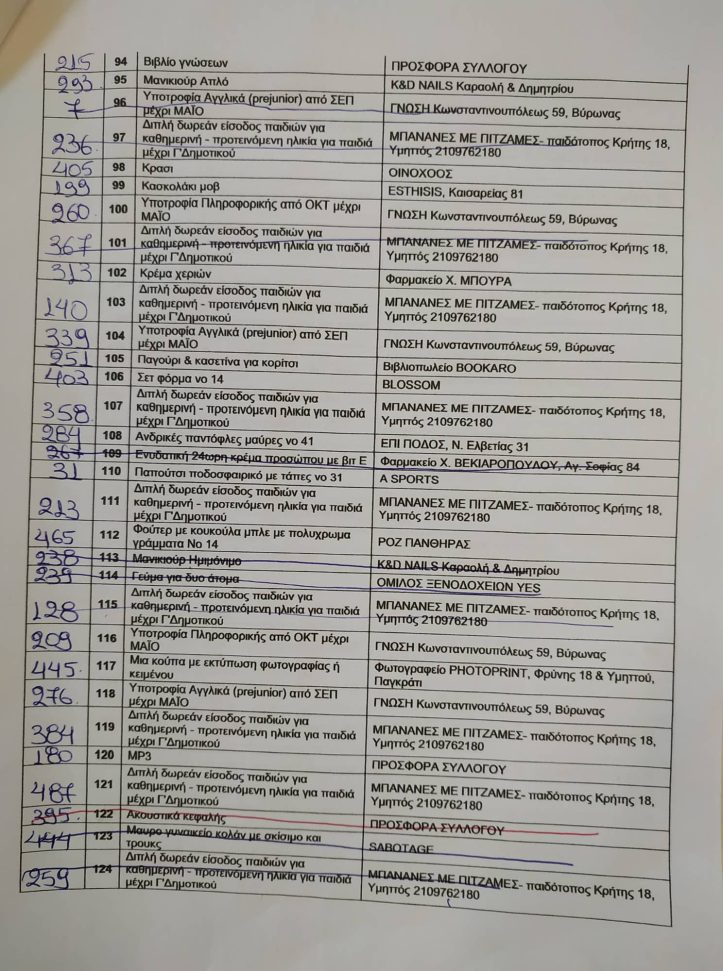 215 94 Βιβλίο γνώσεων ΠΡΟΣΦΟΡΑ ΣΥΛΛΟΓΟΥ
293 95 Μανικιούρ Απλό K&D NAILS Καραολή & Δημητρίου
7 96 Υποτροφία Αγγλικά (prejunior) από ΣΕΠ
μέχρι ΜΑΪΟ ΓΝΩΣΗ Κωνσταντινουπόλεως 59, Βύρωνας
236 97 Διπλή δωρεάν είσοδος παιδιών για
καθημερινή - προτεινόμενη ηλικία για παιδιά
μέχρι Γ'Δημοτικού ΜΠΑΝΑΝΕΣ ΜΕ ΠΙΤΖΑΜΕΣ- παιδότοπος Κρήτης 18,
Υμηττός 2109762180
405 98 Κρασι ΟΙΝΟΧΟΟΣ
199 99 Κασκολάκι μοβ ESTHISIS, Καισαρείας 81
260 100 Υποτροφία Πληροφορικής από ΟΚΤ μέχρι
ΜΑΪΟ ΓΝΩΣΗ Κωνσταντινουπόλεως 59, Βύρωνας
367 101 Διπλή δωρεάν είσοδος παιδιών για
καθημερινή - προτεινόμενη ηλικία για παιδιά
μέχρι Γ'Δημοτικού ΜΠΑΝΑΝΕΣ ΜΕ ΠΙΤΖΑΜΕΣ- παιδότοπος Κρήτης 18,
Υμηττός 2109762180
313 102 Κρέμα χεριών Φαρμακείο Χ. ΜΠΟΥΡΑ
140 103 Διπλή δωρεάν είσοδος παιδιών για
καθημερινή - προτεινόμενη ηλικία για παιδιά
μέχρι Γ'Δημοτικού ΜΠΑΝΑΝΕΣ ΜΕ ΠΙΤΖΑΜΕΣ- παιδότοπος Κρήτης 18,
Υμηττός 2109762180
339 104 Υποτροφία Αγγλικά (prejunior) από ΣΕΠ
μέχρι ΜΑΪΟ ΓΝΩΣΗ Κωνσταντινουπόλεως 59, Βύρωνας
251 105 Παγούρι & κασετίνα για κορίτσι Βιβλιοπωλείο BOOKARO
403 106 Σετ φόρμα νο 14 BLOSSOM
358 107 Διπλή δωρεάν είσοδος παιδιών για
καθημερινή - προτεινόμενη ηλικία για παιδιά
μέχρι Γ'Δημοτικού ΜΠΑΝΑΝΕΣ ΜΕ ΠΙΤΖΑΜΕΣ- παιδότοπος Κρήτης 18,
Υμηττός 2109762180
284 108 Ανδρικές παντόφλες μαύρες νο 41 ΕΠΙ ΠΟΔΟΣ, Ν. Ελβετίας 31
267 109 Ενυδατική 24ωρη κρέμα προσώπου με βιτ Ε Φαρμακείο Χ. ΒΕΚΙΑΡΟΠΟΥΛΟΥ, Αγ. Σοφίας 84
31 110 Παπούτσι ποδοσφαιρικό με τάπες νο 31 A SPORTS
213 111 Διπλή δωρεάν είσοδος παιδιών για
καθημερινή - προτεινόμενη ηλικία για παιδιά
μέχρι Γ'Δημοτικού ΜΠΑΝΑΝΕΣ ΜΕ ΠΙΤΖΑΜΕΣ- παιδότοπος Κρήτης 18,
Υμηττός 2109762180
465 112 Φούτερ με κουκούλα μπλε με πολυχρωμα
γράμματα Νο 14 ΡΟΖ ΠΑΝΘΗΡΑΣ
238 113 Μανικιούρ Ημιμόνιμο K&D NAILS Καραολή & Δημητρίου
239 114 Γεύμα για δυο άτομα ΟΜΙΛΟΣ ΞΕΝΟΔΟΧΕΙΩΝ YES
128 115 Διπλή δωρεάν είσοδος παιδιών για
καθημερινή - προτεινόμενη ηλικία για παιδιά
μέχρι Γ'Δημοτικού ΜΠΑΝΑΝΕΣ ΜΕ ΠΙΤΖΑΜΕΣ- παιδότοπος Κρήτης 18,
Υμηττός 2109762180
209 116 Υποτροφία Πληροφορικής από ΟΚΤ μέχρι
ΜΑΪΟ ΓΝΩΣΗ Κωνσταντινουπόλεως 59, Βύρωνας
445 117 Μια κούπα με εκτύπωση φωτογραφίας ή
κειμένου Φωτογραφείο PHOTOPRINT, Φρύνης 18 & Υμηττού,
Παγκράτι
276 118 Υποτροφία Αγγλικά (prejunior) από ΣΕΠ
μέχρι ΜΑΪΟ ΓΝΩΣΗ Κωνσταντινουπόλεως 59, Βύρωνας
384 119 Διπλή δωρεάν είσοδος παιδιών για
καθημερινή - προτεινόμενη ηλικία για παιδιά
μέχρι Γ'Δημοτικού ΜΠΑΝΑΝΕΣ ΜΕ ΠΙΤΖΑΜΕΣ- παιδότοπος Κρήτης 18,
Υμηττός 2109762180
180 120 MP3 ΠΡΟΣΦΟΡΑ ΣΥΛΛΟΓΟΥ
487 121 Διπλή δωρεάν είσοδος παιδιών για
καθημερινή - προτεινόμενη ηλικία για παιδιά
μέχρι Γ'Δημοτικού ΜΠΑΝΑΝΕΣ ΜΕ ΠΙΤΖΑΜΕΣ- παιδότοπος Κρήτης 18,
Υμηττός 2109762180
395 122 Ακουστικά κεφαλής ΠΡΟΣΦΟΡΑ ΣΥΛΛΟΓΟΥ
444 123 Μαυρο γυναικείο κολάν με σκίσιμο και
τρουκς SABOTAGE
259 124 Διπλή δωρεάν είσοδος παιδιών για
καθημερινή - προτεινόμενη ηλικία για παιδιά
μέχρι Γ'Δημοτικού ΜΠΑΝΑΝΕΣ ΜΕ ΠΙΤΖΑΜΕΣ- παιδότοπος Κρήτης 18,
Υμηττός 2109762180